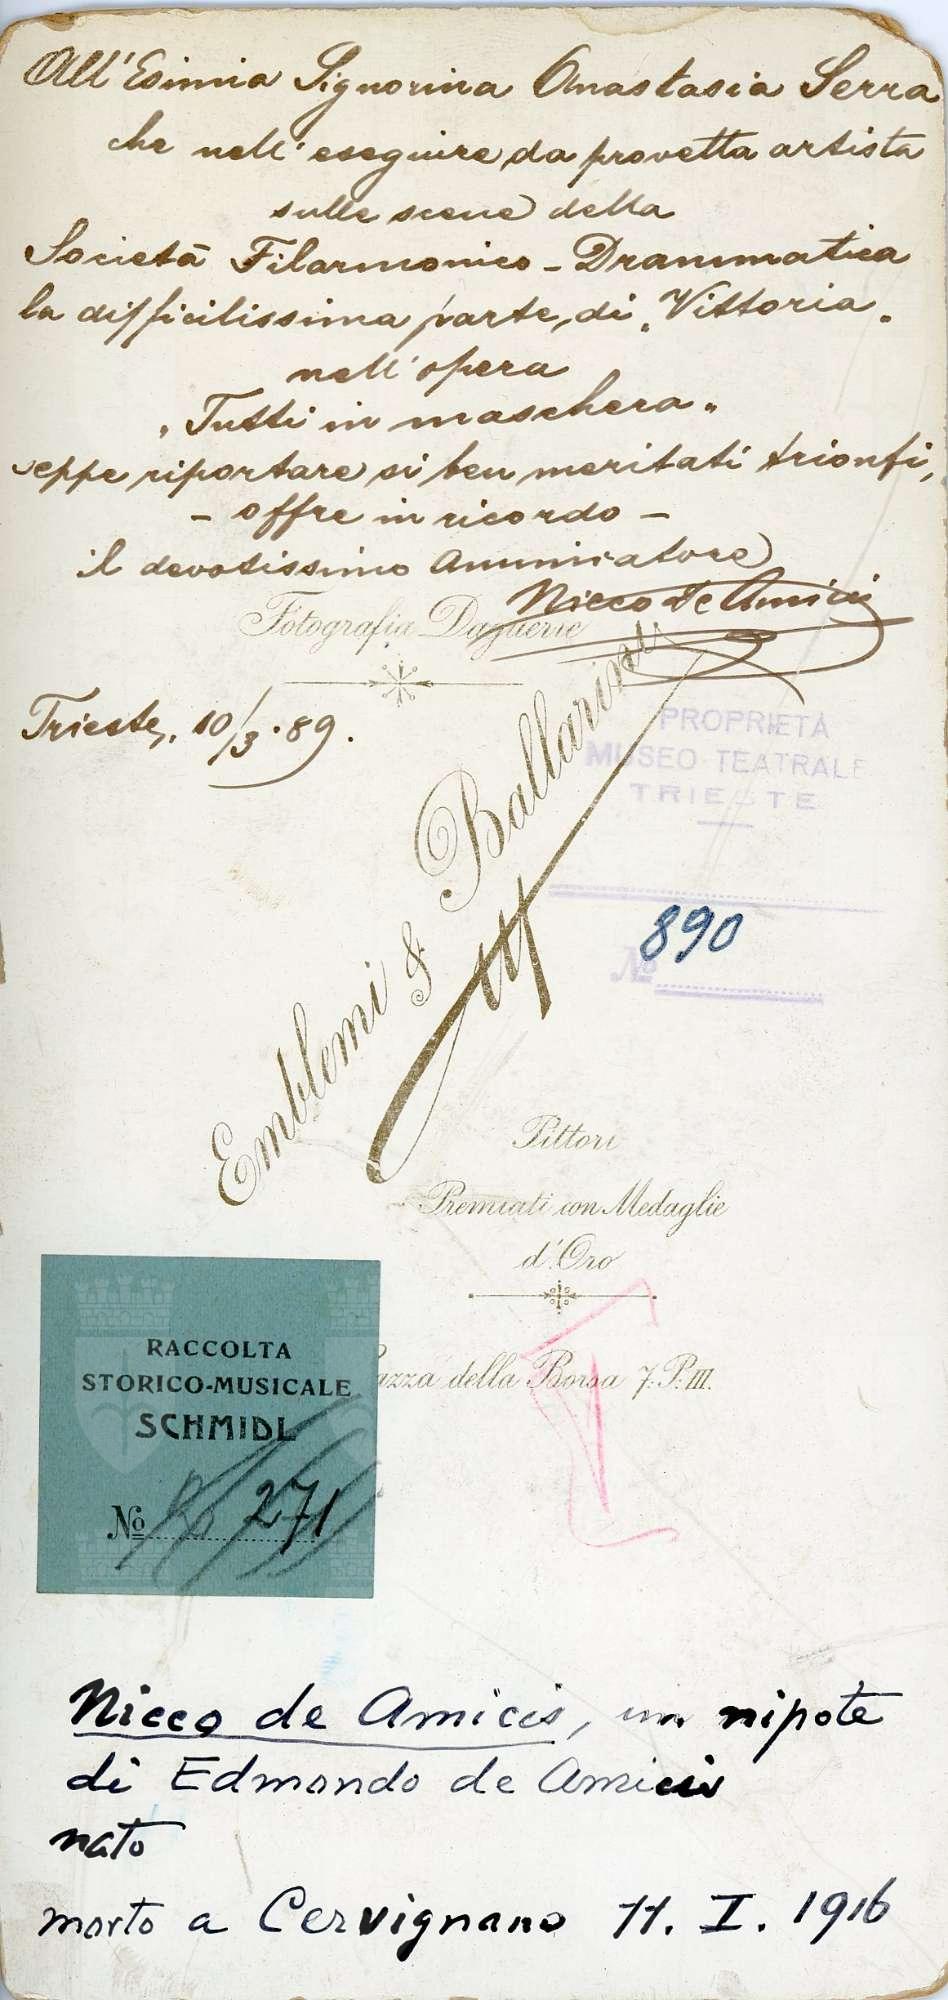 All'Esimia Signorina Anastasia Serra
che nell'eseguire da provetta artista
sulle scene della
Società Filarmonico-Drammatica
la difficilissima parte, di „Vittoria„
nell'opera
„Tutti in maschera„
seppe riportare sì ben meritati trionfi,
- offre in ricordo -
il devotissimo ammiratore
Nicco de Amicis
Fotografia Daguerre
Trieste, 10/3.89.
PROPRIETÀ
MUSEO TEATRALE
TRIESTE
Emblemi & Ballarini
No 890
Pittori
Premiati con Medaglie
d'Oro
Piazza della Borsa 7. P. III.
RACCOLTA
STORICO-MUSICALE
SCHMIDL
No 271
Nicco de Amicis, un nipote
di Edmondo de Amicis
nato
morto a Cervignano 11. I. 1916